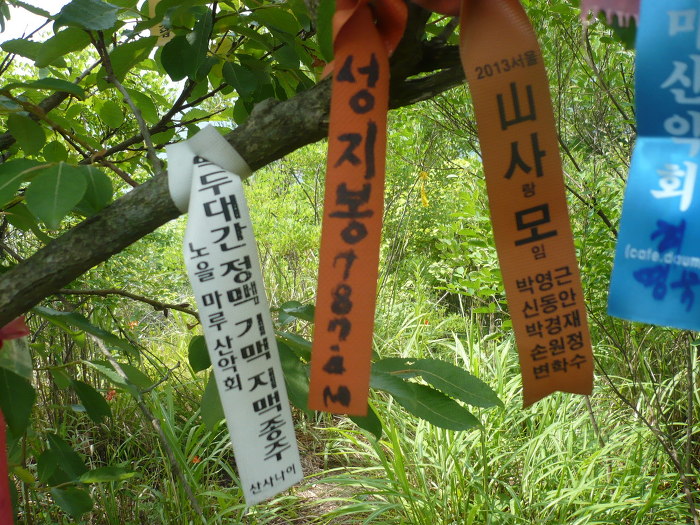 두대간 정맥 기맥 지맥종주
노을 마루 산악회
산사나이
성지봉
787.4M
2013서울
山사랑
모임
박영근
신동안
박경재
손원정
변학수
미산악회
(cafe.daum